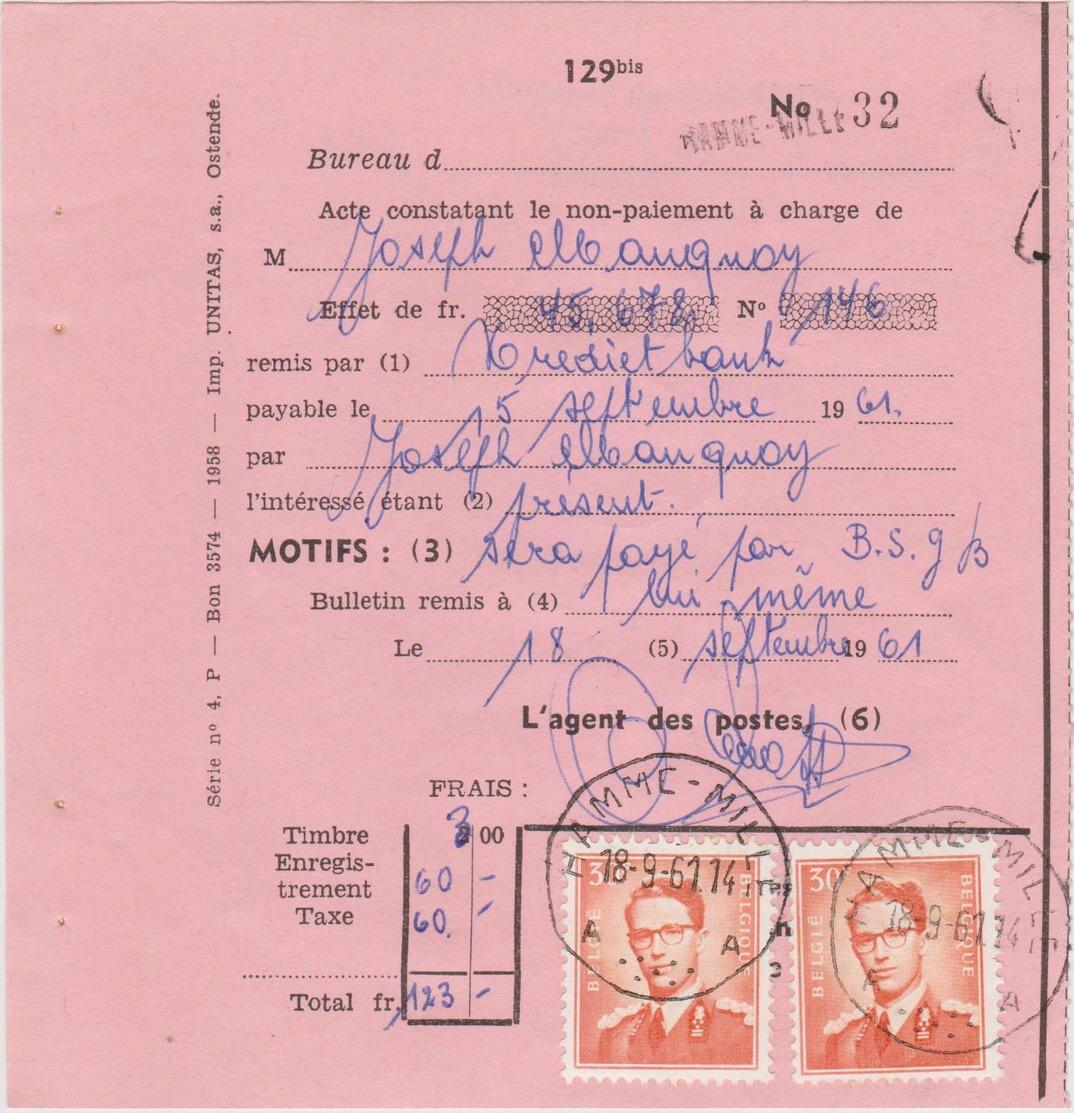 129bis
No 32
HAMME-MILLE
Bureau d
Acte constatant le non-paiement à charge de
M Joseph Mauquoy
Effet de fr. 45,678 N° 146
remis par (1) Kredietbank
payable le 15 septembre 19 61.
par Joseph Mauquoy
l'intéressé étant (2) présent.
MOTIFS : (3) sera payé par B.S.g
Bulletin remis à (4) lui même
Le 18 (5) septembre 19 61
L'agent des postes, (6)
FRAIS :
Timbre 3 00
Enregis-
trement 60 -
Taxe 60. -
Total fr. 123 -
Série n° 4, P — Bon 3574 — 1958 — Imp. UNITAS, s.a., Ostende.
HAMME-MILLE
18-9-61.14
A A
30
BELGIË BELGIQUE
HAMME-MILLE
18-9-61.14
A A
30
BELGIË BELGIQUE